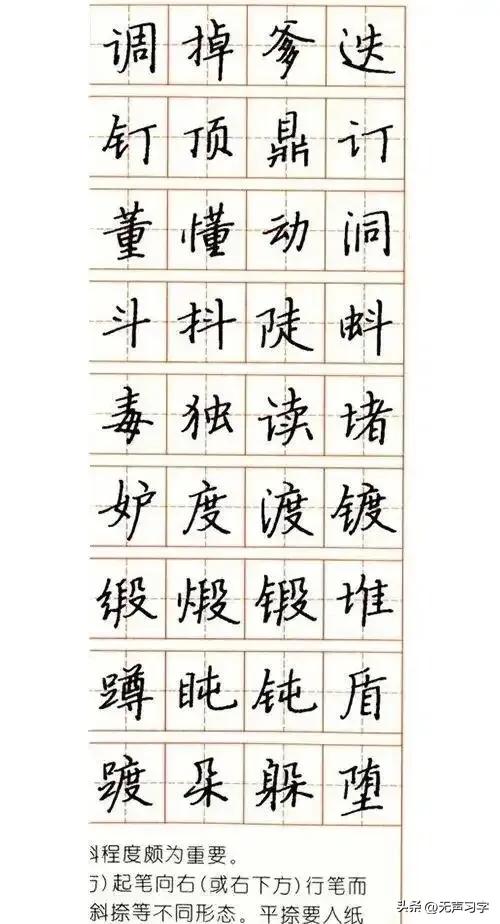 调掉爹迭
钉顶鼎订
董懂动洞
斗抖陡蚪
毒独读堵
妒度渡镀
缎煅锻堆
蹲盹钝盾
踱朵躲堕
斜程度颇为重要。
方)起笔向右(或右下方)行笔而
斜捺等不同形态。平捺要入纸
头条 @无声习字